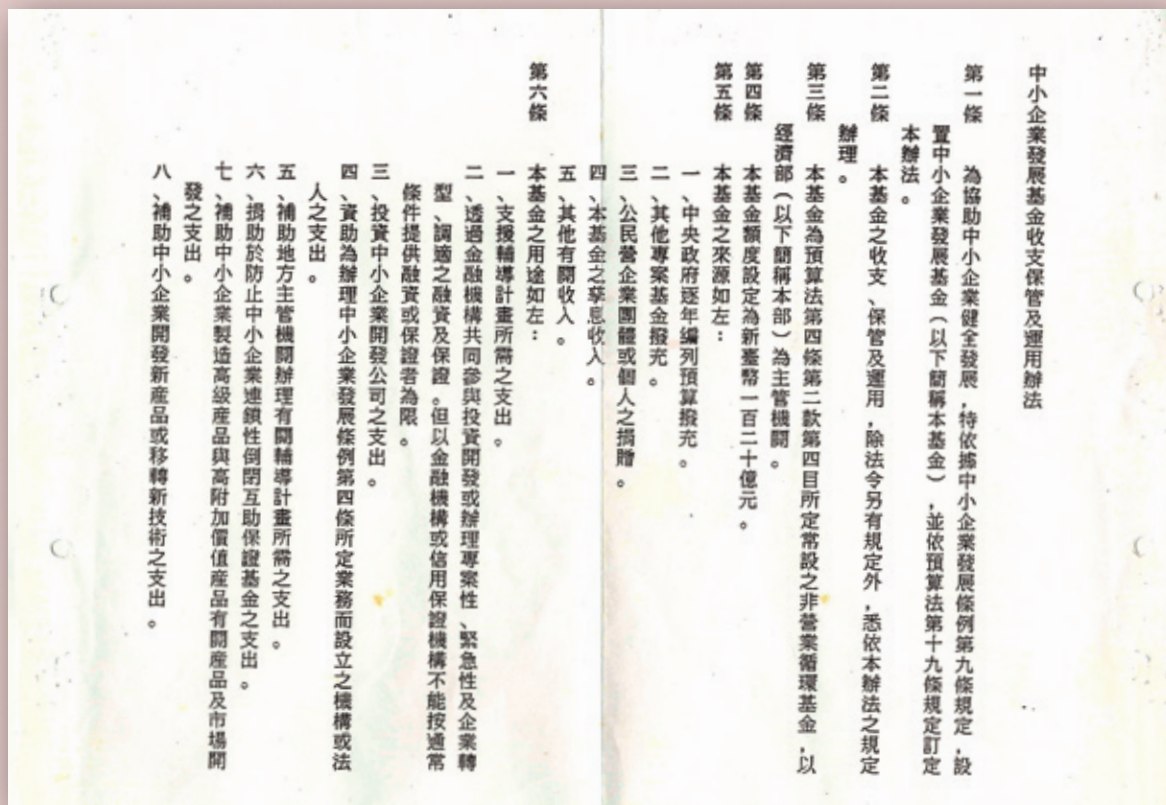 中小企業發展基金收支保管及運用辦法
第一條　為協助中小企業健全發展，特依據中小企業發展條例第九條規定，設
置中小企業發展基金（以下簡稱本基金），並依預算法第十九條規定訂定
本辦法。
第二條　本基金之收支、保管及運用，除法令另有規定外，悉依本辦法之規定
辦理。
第三條　本基金為預算法第四條第二款第四目所定常設之非營業循環基金，以
經濟部（以下簡稱本部）為主管機關。
第四條　本基金額度設定為新臺幣一百二十億元。
第五條　本基金之來源如左：
一、中央政府逐年編列預算撥充。
二、其他專案基金撥充。
三、公民營企業團體或個人之捐贈。
四、本基金之孳息收入。
五、其他有關收入。
第六條　本基金之用途如左：
一、支援輔導計畫所需之支出。
二、透過金融機構共同參與投資開發或辦理專案性、緊急性及企業轉
型、調適之融資及保證。但以金融機構或信用保證機構不能按通常
條件提供融資或保證者為限。
三、投資中小企業開發公司之支出。
四、資助為辦理中小企業發展條例第四條所定業務而設立之機構或法
人之支出。
五、補助地方主管機關辦理有關輔導計畫所需之支出。
六、捐助於防止中小企業連鎖性倒閉互助保證基金之支出。
七、補助中小企業製造高級產品與高附加價值產品有關產品及市場開
發之支出。
八、補助中小企業開發新產品或移轉新技術之支出。